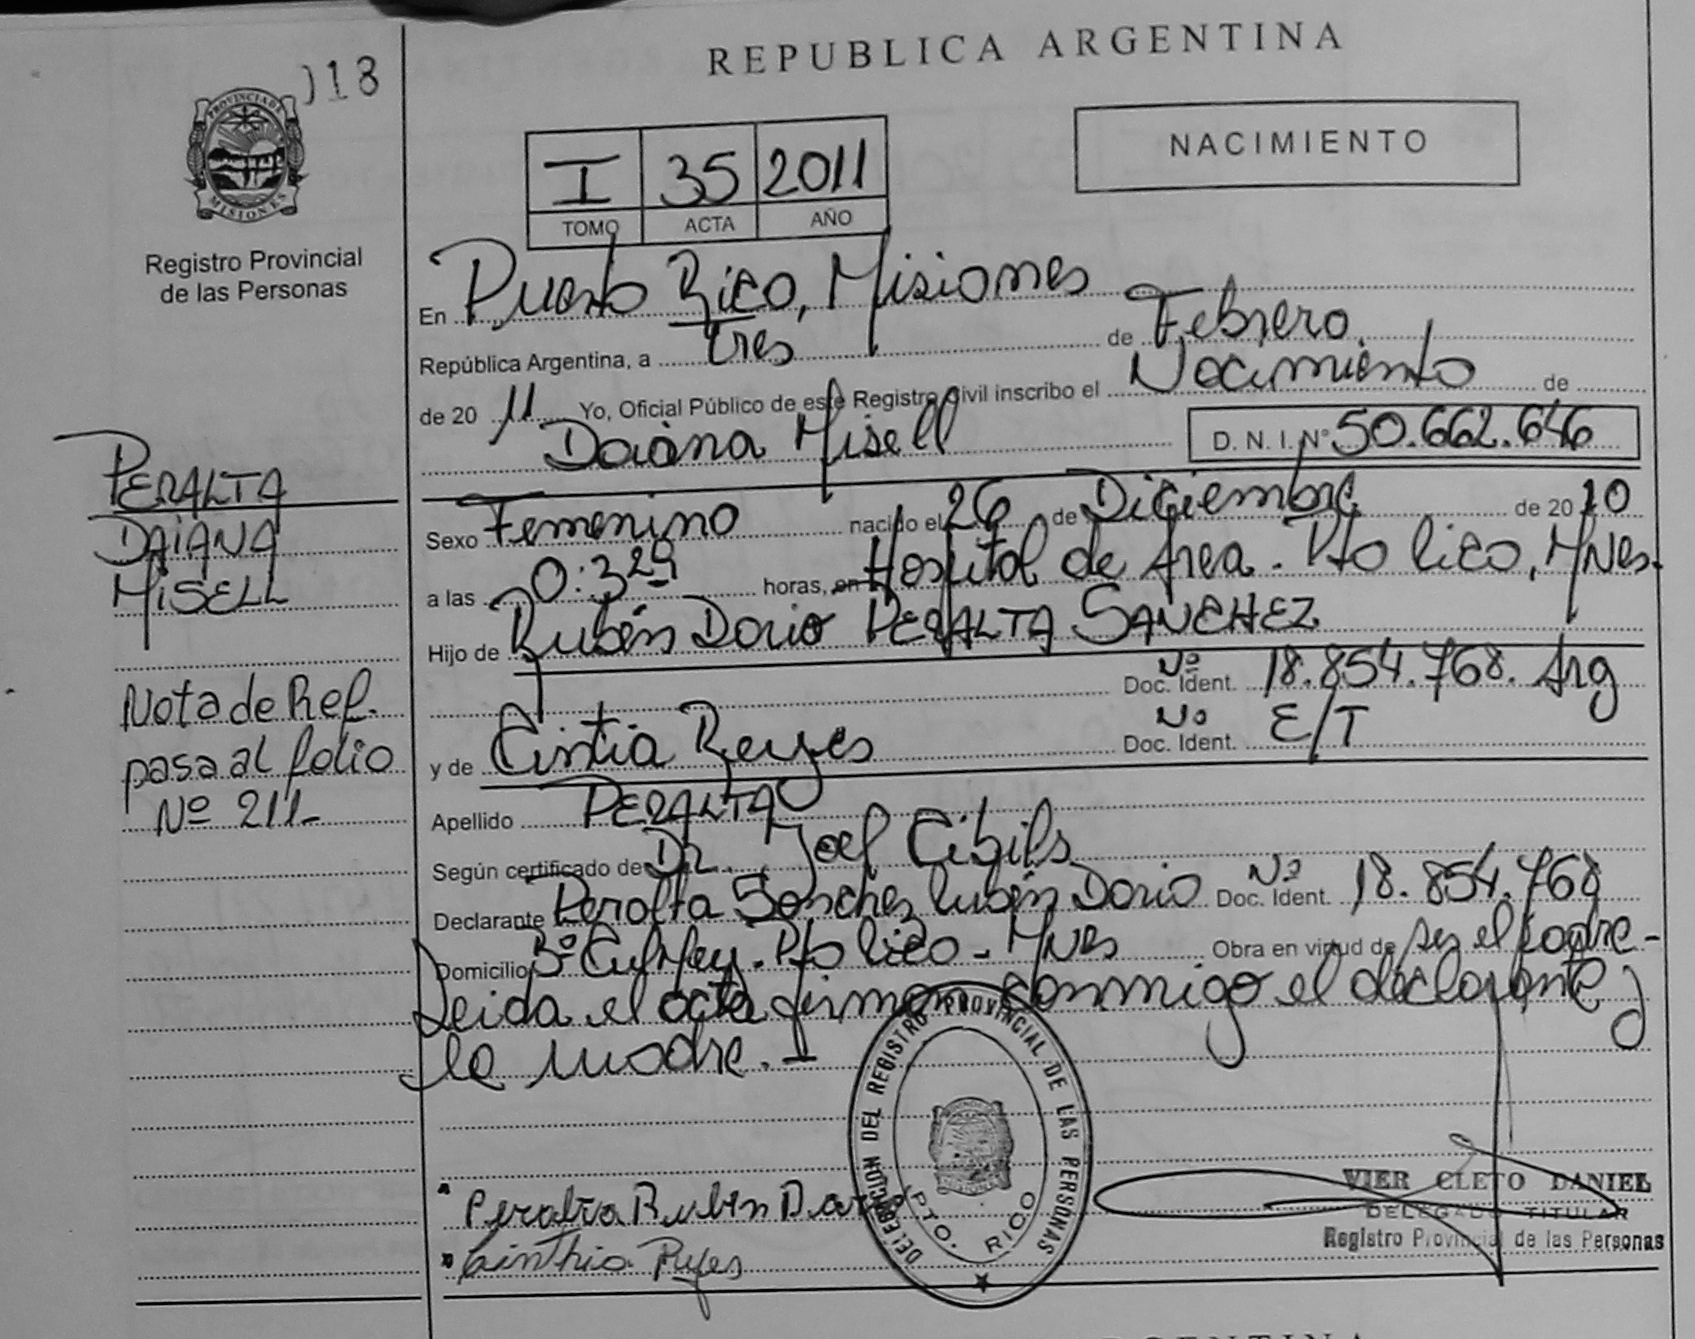 REPUBLICA ARGENTINA
118
PROVINCIA DE
MISIONES
Registro Provincial
de las Personas
I 35 2011
TOMO ACTA AÑO
NACIMIENTO
En Puerto Rico, Misiones
República Argentina, a tres de Febrero
de 20 11 Yo, Oficial Público de este Registro Civil inscribo el Nacimiento de
Daiana Misell D. N. I. Nº 50.662.646
PERALTA
DAIANA
MISELL
Sexo Femenino nacido el 26 de Diciembre de 2010
a las horas, en Hospital de Area. Pto Rico, Mnes.
Hijo de Rubén Dario PERALTA SANCHEZ
Nº
Doc. Ident. 18.854.768. Arg
Nota de Ref.
pasa al folio
Nº 211-
y de Cintia Reyes Nº Doc. Ident. E/T
Apellido PERALTA
Según certificado de Dr. Joel Cibils
Declarante Peralta Sanchez Rubén Dario Nº Doc. Ident. 18.854.768
Domicilio Bº Pto Rico - Mnes Obra en virtud de ser el padre-
Leida el acta firman conmigo el declarante y
la madre.
DELEGACION DEL REGISTRO PROVINCIAL DE LAS PERSONAS
PTO. RICO
Peralta Ruben Dario
Cinthia Reyes
VIER CLETO DANIEL
DELEGADO TITULAR
Registro Provincial de las Personas
ARGENTINA